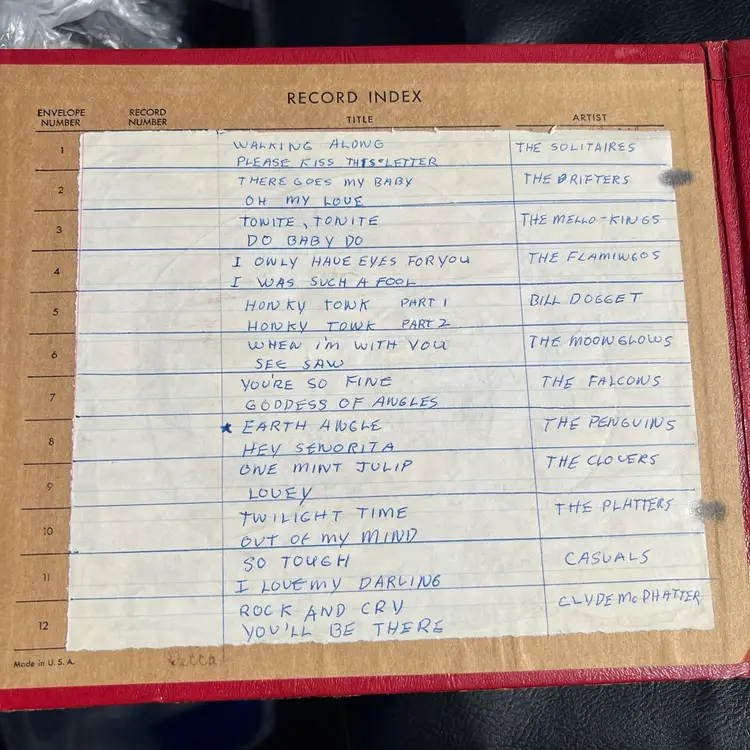 RECORD INDEX
ENVELOPE NUMBER RECORD NUMBER TITLE ARTIST
1 WALKING ALONG THE SOLITAIRES
PLEASE KISS THIS LETTER
2 THERE GOES MY BABY THE DRIFTERS
OH MY LOVE
3 TONITE, TONITE THE MELLO-KINGS
DO BABY DO
4 I ONLY HAVE EYES FOR YOU THE FLAMINGOS
I WAS SUCH A FOOL
5 HONKY TONK PART 1 BILL DOGGET
HONKY TONK PART 2
6 WHEN I'M WITH YOU THE MOONGLOWS
SEE SAW
7 YOU'RE SO FINE THE FALCONS
GODDESS OF ANGLES
8 ★ EARTH ANGLE THE PENGUINS
HEY SENORITA
9 ONE MINT JULIP THE CLOVERS
LOVEY
10 TWILIGHT TIME THE PLATTERS
OUT OF MY MIND
11 SO TOUGH CASUALS
I LOVE MY DARLING
12 ROCK AND CRY CLYDE McPHATTER
YOU'LL BE THERE
Made in U.S.A.